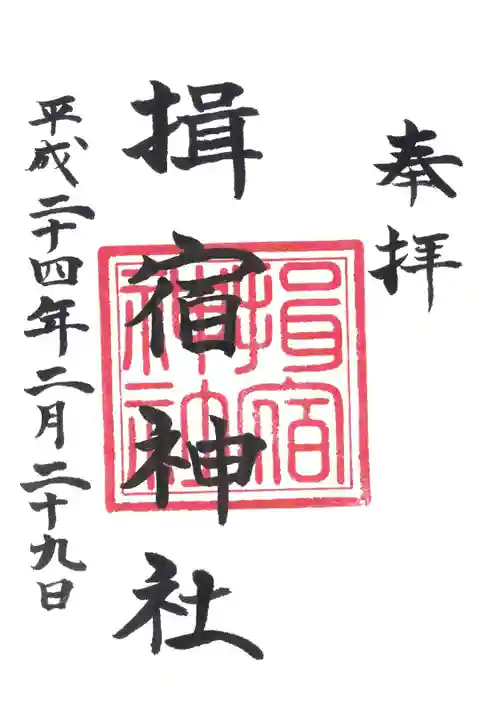 奉拝
揖宿神社
揖宿
神社
平成二十四年二月二十九日